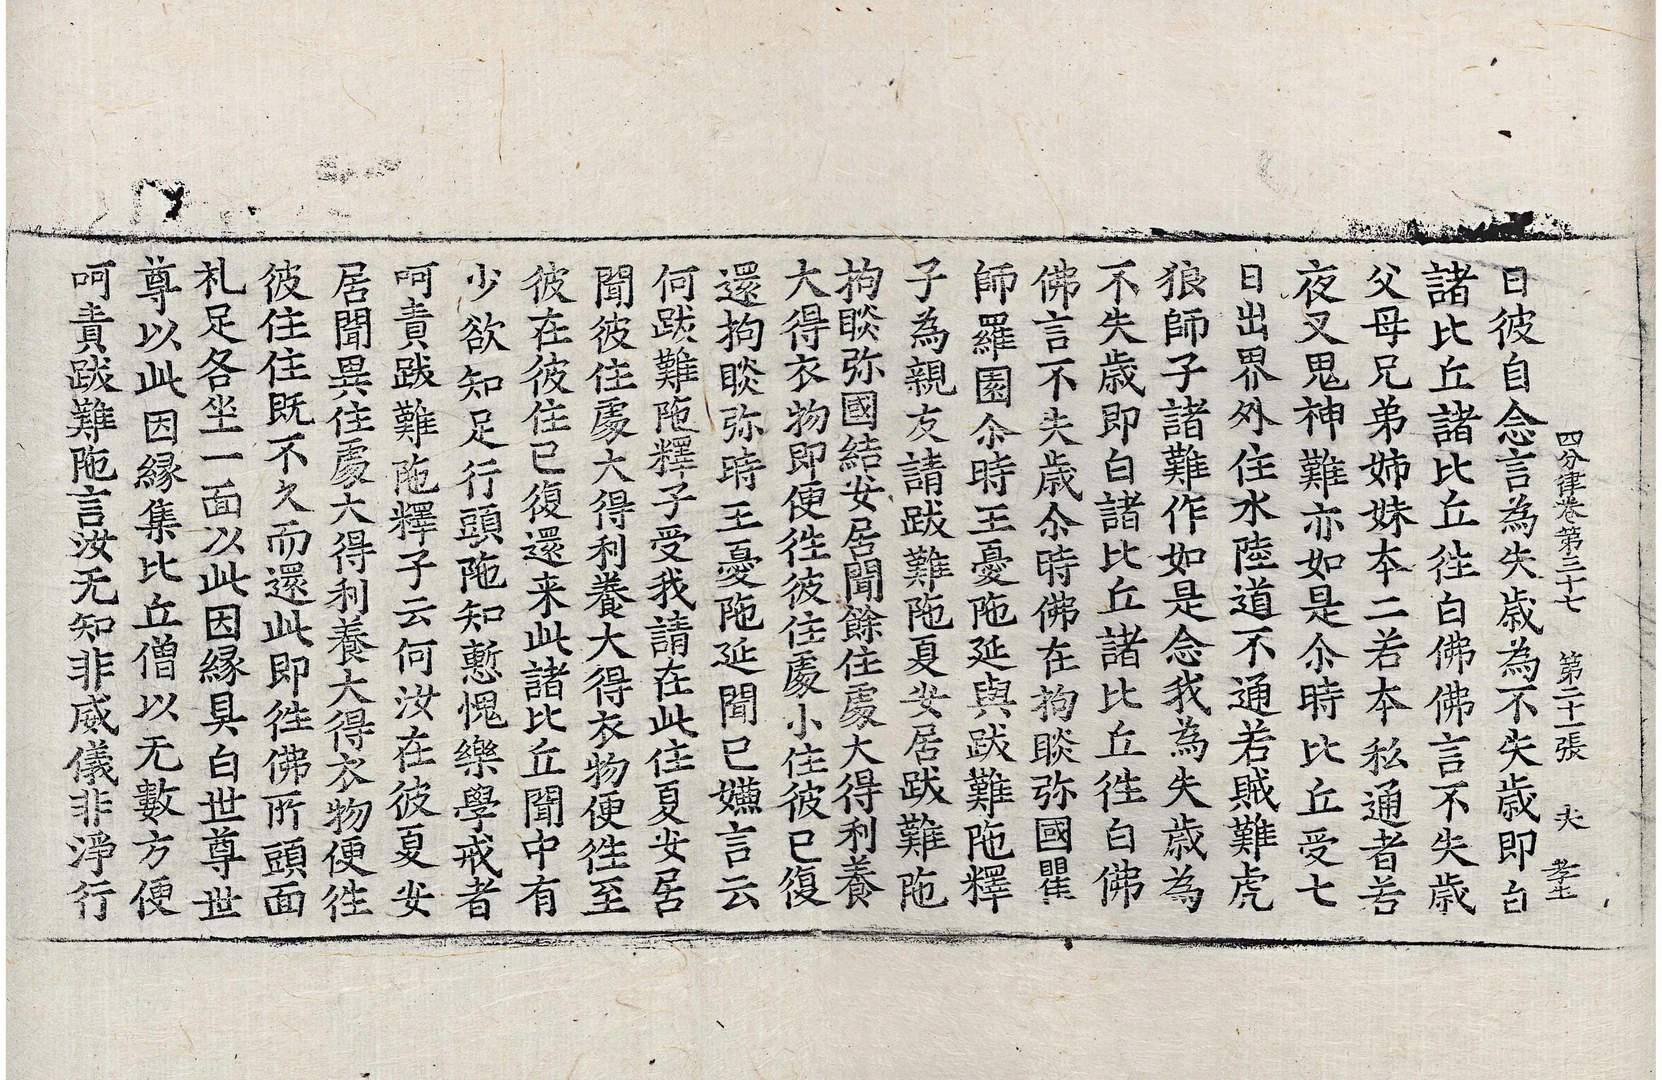 四分律卷第三十七 第二十一張 夫 孝士
日彼自念言為失歳為不失歳即白
諸比丘諸比丘徃白佛佛言不失歳
父母兄弟姉妹本二若本私通者若
夜叉鬼神難亦如是尒時比丘受七
日出界外住水陸道不通若賊難虎
狼師子諸難作如是念我為失歳為
不失歳即白諸比丘諸比丘徃白佛
佛言不失歳尒時佛在拘睒弥國瞿
師羅園尒時王憂陁延與跋難陁釋
子為親友請跋難陁夏安居跋難陁
拘睒弥國結安居聞餘住處大得利養
大得衣物即便徃彼住處小住彼已復
還拘睒弥時王憂陁延聞已嫌言云
何跋難陁釋子受我請在此住夏安居
聞彼住處大得利養大得衣物便徃至
彼在彼住已復還来此諸比丘聞中有
少欲知足行頭陁知慙愧樂學戒者
呵責跋難陁釋子云何汝在彼夏安
居聞異住處大得利養大得衣物便徃
彼住住既不久而還此即徃佛所頭面
礼足各坐一面以此因縁具白世尊世
尊以此因縁集比丘僧以无數方便
呵責跋難陁言汝无知非威儀非淨行